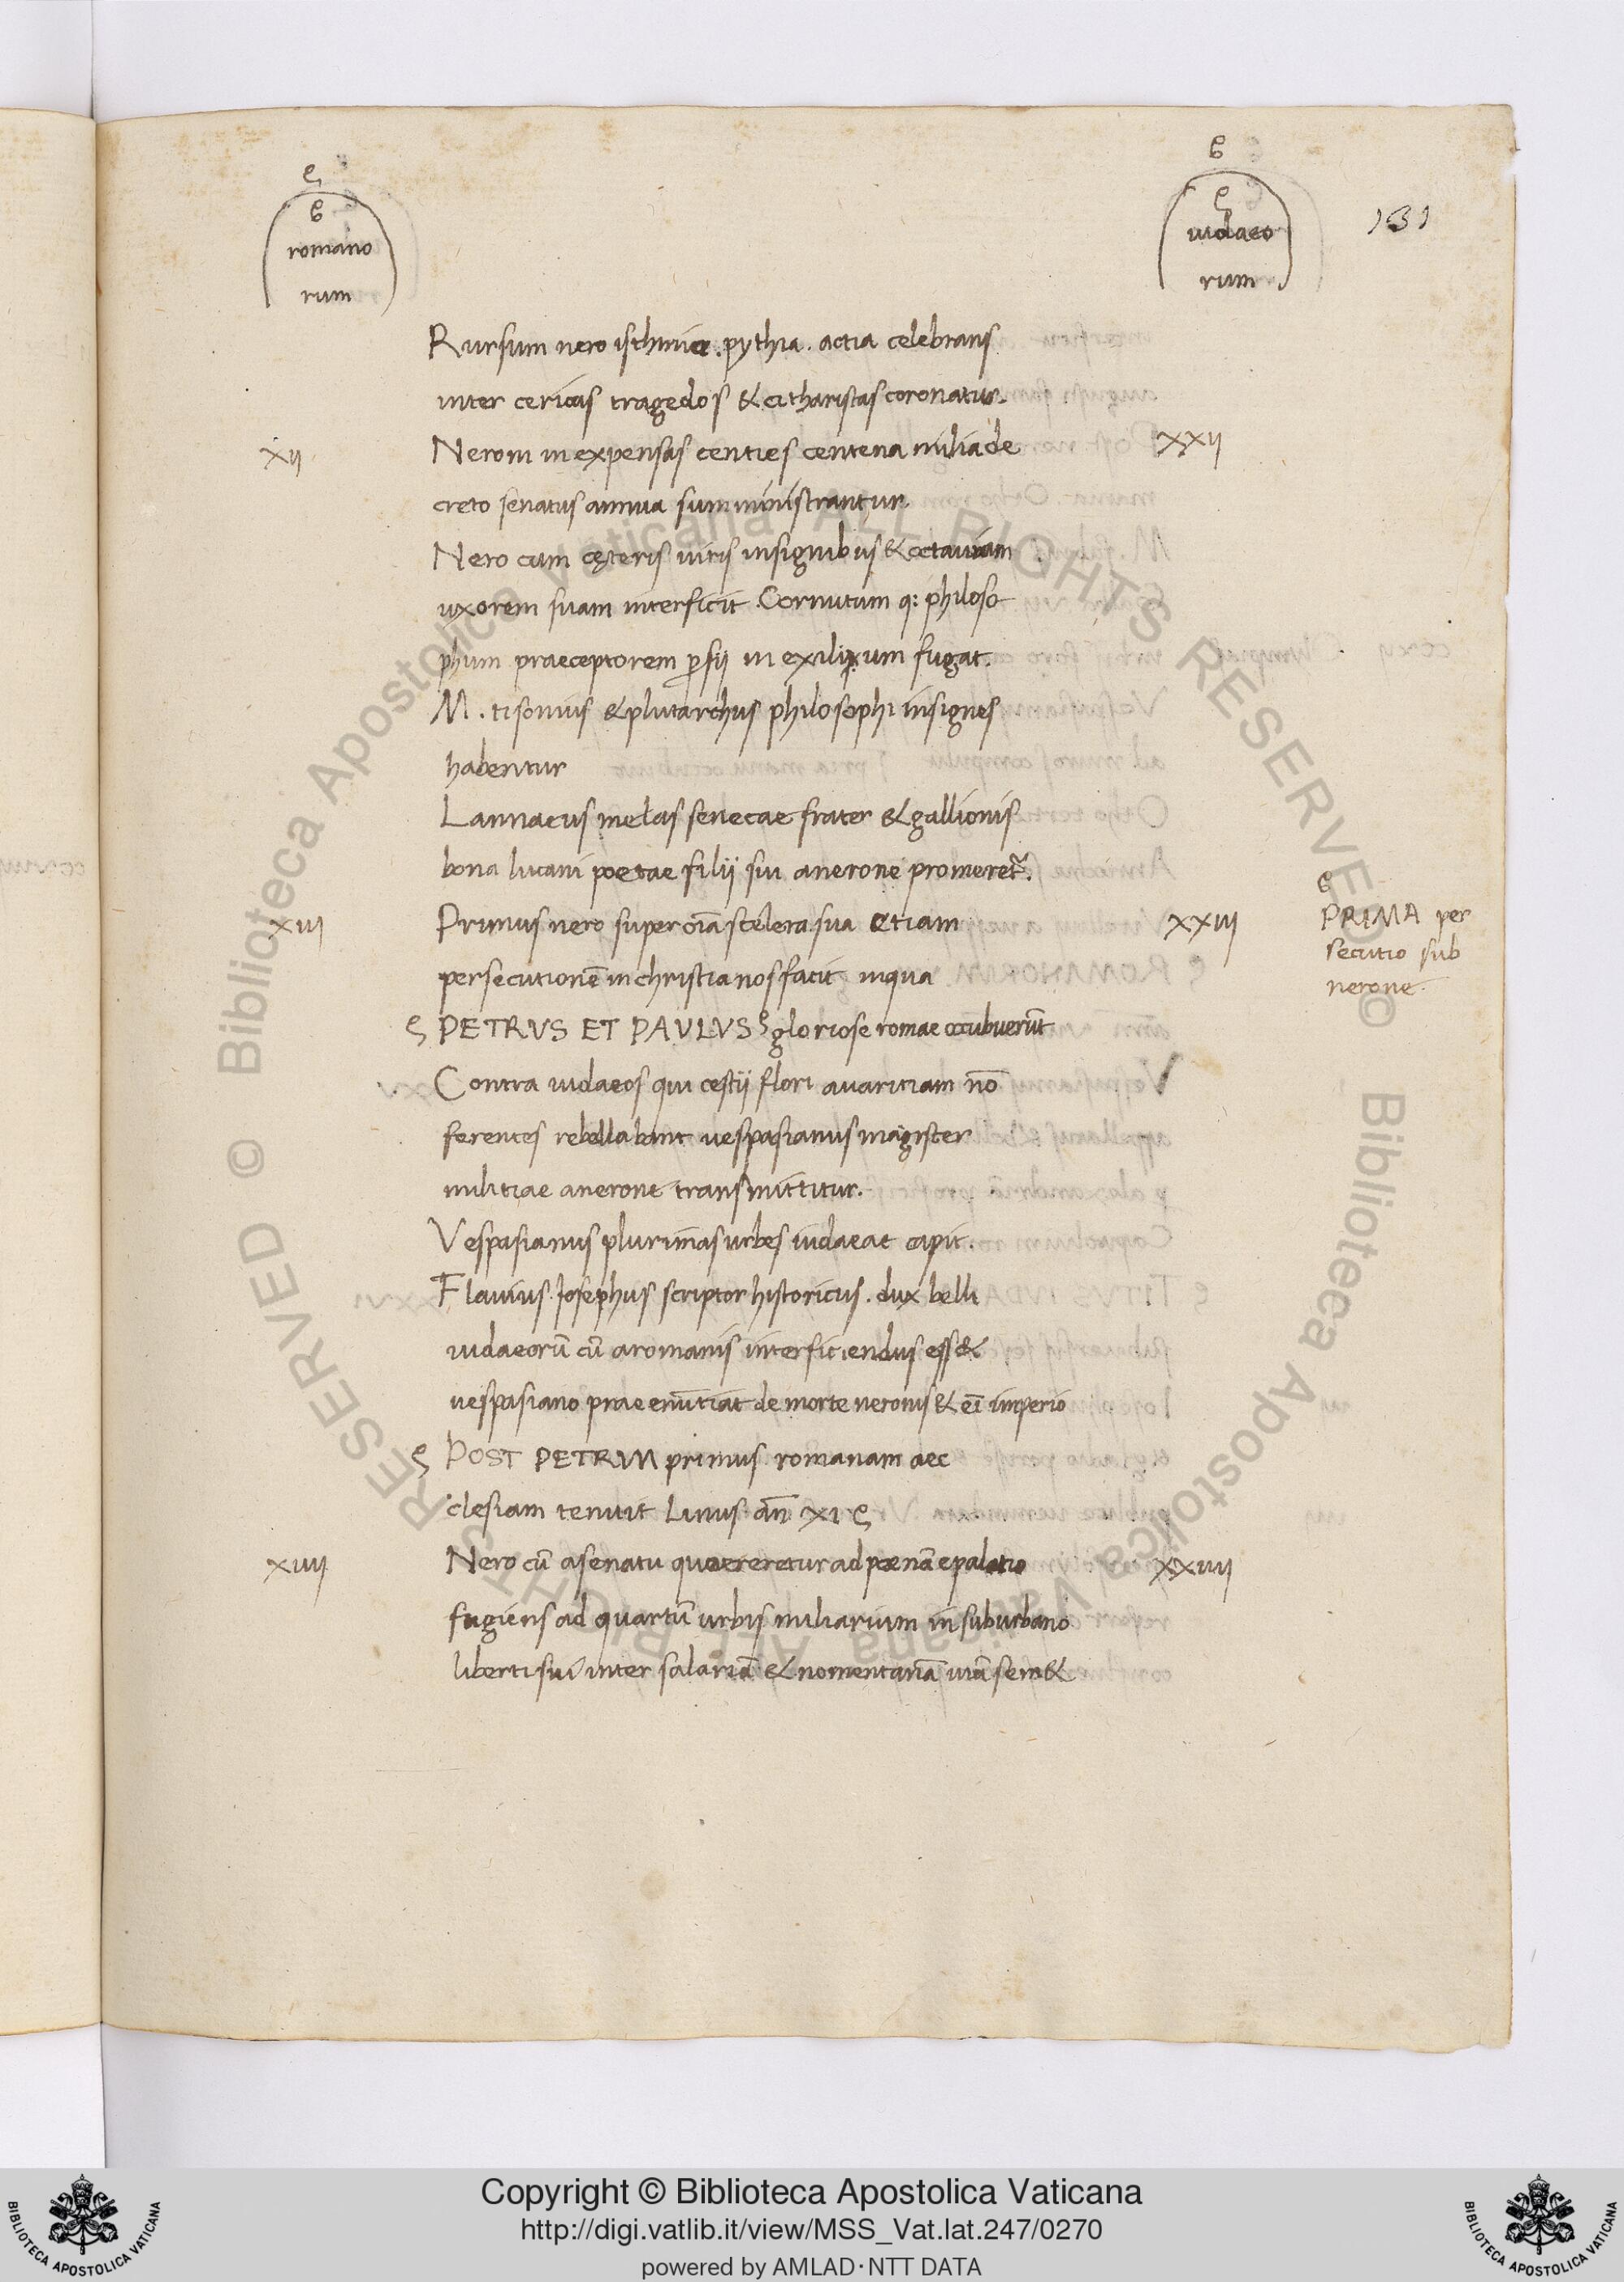 romano
rum
iudaeo
rum
131
Rursum nero isthmia. pythia. actia celebrans
inter cericas tragedos & citharistas coronatur.
xii
Neroni in expensas centies centena milia de
xxii
creto senatus annua sumministrantur
Nero cum cęteris uiris insignibus & octauiam
uxorem suam interficit. Cornutum q: philoso
phum praeceptorem ꝑsii in exilium fugat.
M. tisonius & plutarchus philosophi insignes
habentur
L annaeus melas senecae frater & gallionis
bona lucani poetae filii sui anerone promeret᷑.
xiii
Primus nero super oīa scelera sua etiam
xxiii
PRIMA per
secutio sub
nerone
persecutionē in christianos facit inqua
PETRVS ET PAVLVS gloriose romae occubuerūt
Contra iudaeos qui cestii flori auaritiam nō
ferentes rebellabant uespasianus magister
militiae anerone transmittitur.
Vespasianus plurimas urbes iudaeae capit.
Flauius Josephus scriptor historicus. dux belli
iudaeorū cū aromanis interficiendus ess&
uespasiano prae enūtiat de morte neronis & eī imperio
POST PETRUM primus romanam aec
clesiam tenuit Linus añ xi
xiiii
Nero cū asenatu quaereretur ad poenā epalatio
xxiiii
fugiens ad quartū urbis miliarium in suburbano
liberti sui inter salariā & nomentanā uiā sem&
Copyright © Biblioteca Apostolica Vaticana
http://digi.vatlib.it/view/MSS_Vat.lat.247/0270
powered by AMLAD·NTT DATA
BIBLIOTECA APOSTOLICA VATICANA
BIBLIOTECA APOSTOLICA VATICANA
© Biblioteca Apostolica Vaticana ALL RIGHTS RESERVED
© Biblioteca Apostolica Vaticana ALL RIGHTS RESERVED